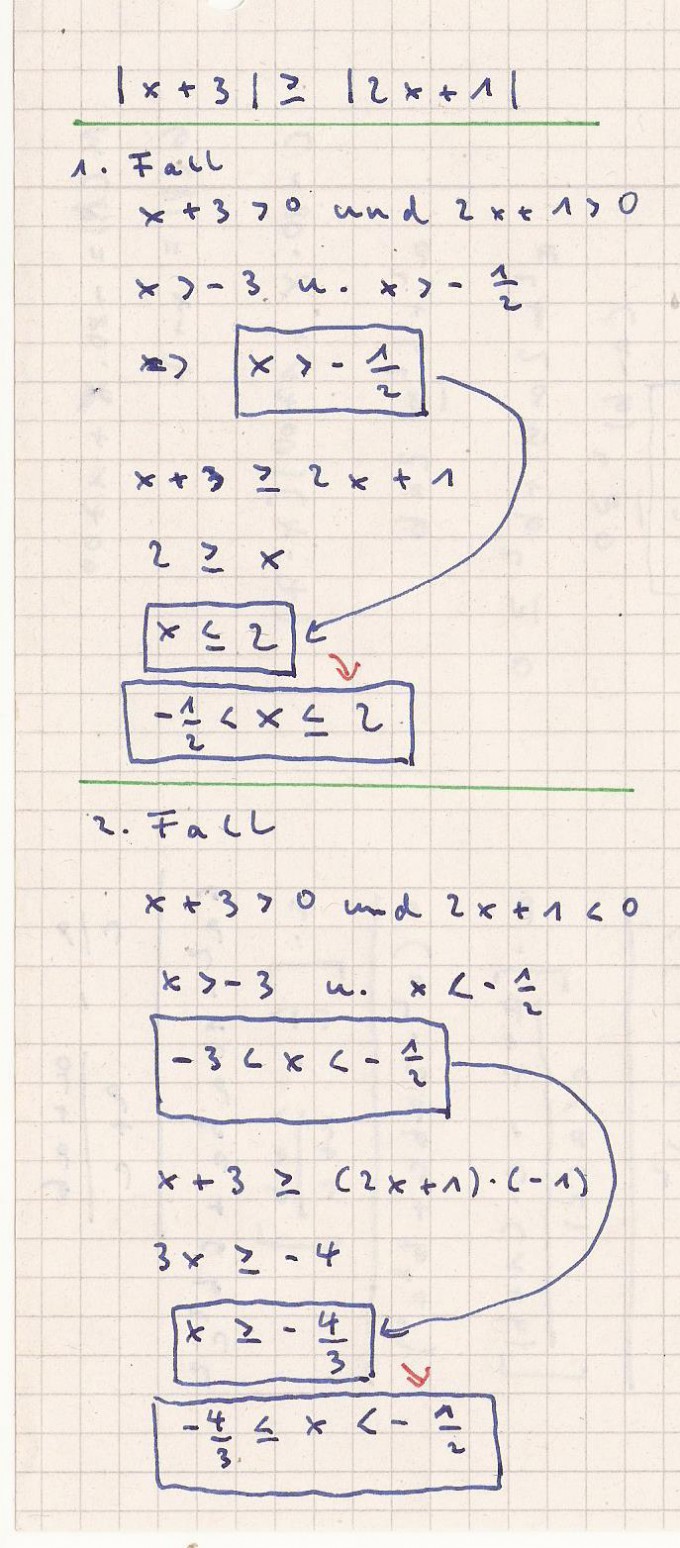 |x + 3| ≥ |2x + 1|
1. Fall
x + 3 > 0 und 2x + 1 > 0
x > - 3 u. x > - 1/2
=> x > - 1/2
x + 3 ≥ 2x + 1
2 ≥ x
x ≤ 2
- 1/2 < x ≤ 2
2. Fall
x + 3 > 0 und 2x + 1 < 0
x > - 3 u. x < - 1/2
- 3 < x < - 1/2
x + 3 ≥ (2x + 1) · (-1)
3x ≥ - 4
x ≥ - 4/3
- 4/3 ≤ x < - 1/2